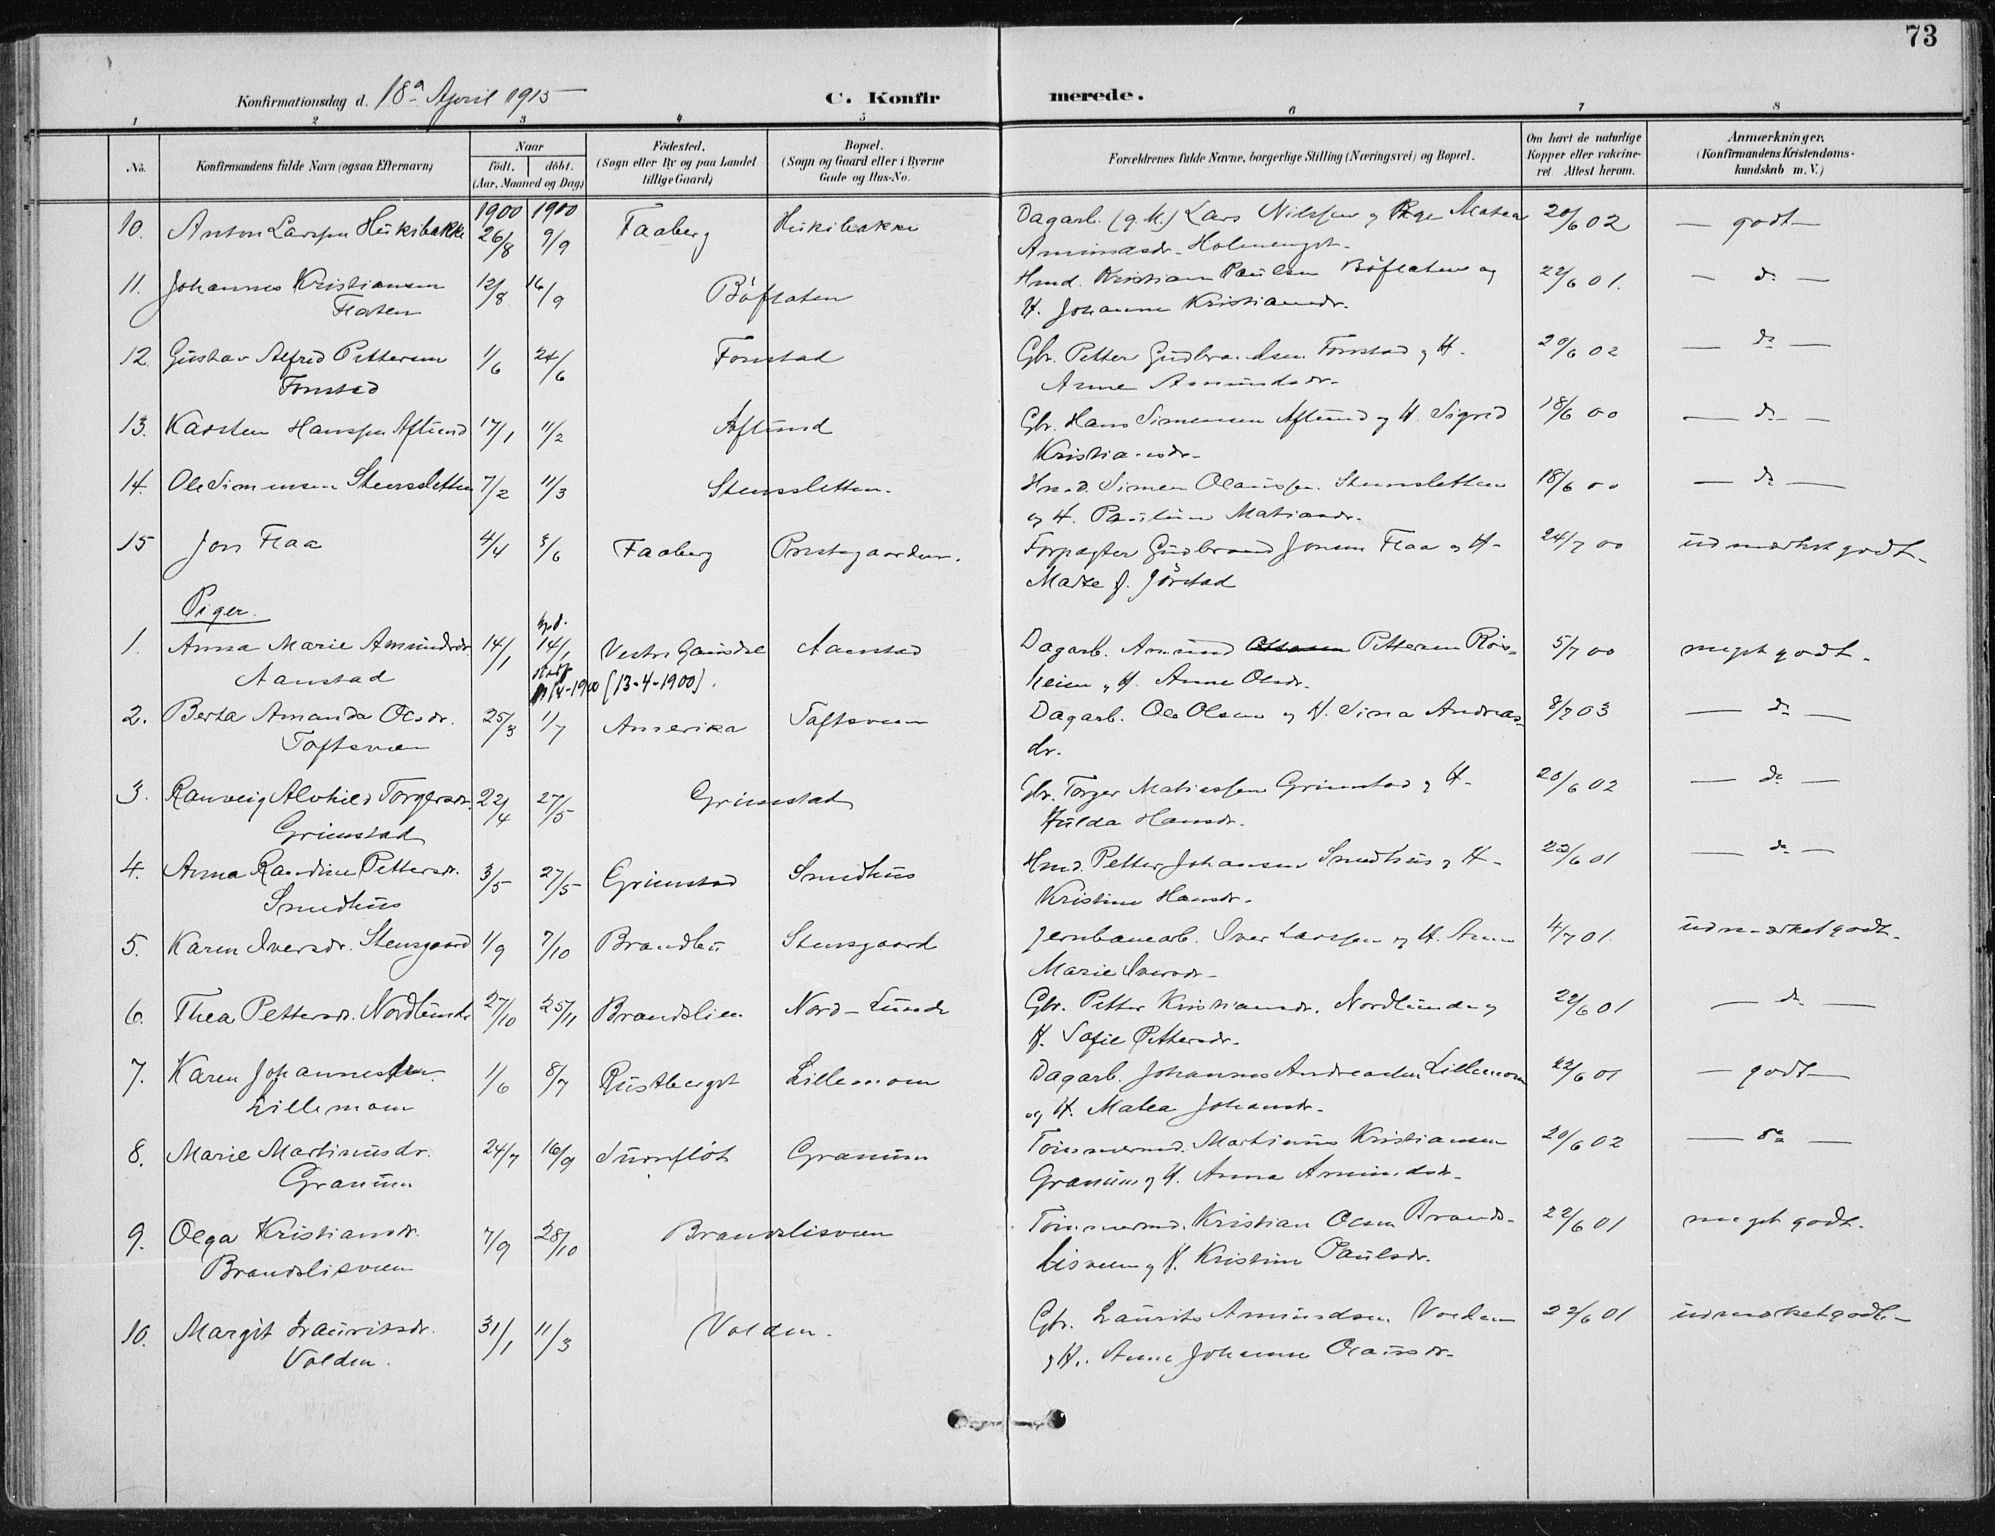 73
Konfirmationsdag d. 18de April 1915
C. Konfirmerede.
1 2 3 4 5 6 7 8
No. Konfirmandens fulde Navn (ogsaa Efternavn) Naar födt. döbt. (Aar, Maaned og Dag) Födested. (Sogn eller By og paa Landet tillige Gaard) Bopæl. (Sogn og Gaard eller i Byerne Gade og Hus-No. Forældrenes fulde Navne, borgerlige Stilling (Næringsvei) og Bopæl. Om havt de naturlige Kopper eller vakcineret. Attest herom. Anmærkninger. (Konfirmandens Kristendomskundskab m. V.)
1900 1900
10. Anton Larssen Hukibakke 26/8 9/9 Faaberg Hukibakke Dagarb. (g. M.) Lars Nilssen og Pige Matea 20/6 02 — godt —
Amundsdr. Holmenget.
11. Johannes Kristiansen 12/8 16/9 Böflaten Hmd. Kristian Paulsen Böflaten og 22/6 01. — do —
Flaten H. Johanne Kristiansdr.
12. Gustav Alfred Pettersen 1/6 24/6 Fonstad Gbr. Petter Gudbrandsen Fonstad og H. 20/6 02 — do —
Fonstad Anne Amundsdr.
13. Karsten Hanssen Aflund 17/1 11/2 Aflund Gbr. Hans Simensen Aflund og H. Sigrid 18/6 00 — do —
Kristiansdr.
14. Ole Simensen Stensletten 7/2 11/3 Stensletten. Hmd. Simen Olaussen Stensletten 18/6 00 — do —
og H. Pauline Matiasdr.
15 Jon Flaa 4/4 3/6 Faaberg Prestegaarden. Forpagter Gudbrand Jonsen Flaa og H. 24/7 00 udmærket godt.
Marte f. Jörstad
Piger.
1. Anna Marie Amundsdr. 14/1 hjd. 14/1 Vestre Gausdal Aanstad Dagarb. Amund Pettersen Röisheim og H. Anne Olsdr. 5/7 00 meget godt.
Aanstad stadf. 13/4-1900 [13-4-1900].
2. Berta Amanda Olsdr. 25/3 1/7 Amerika Toftsveen Dagarb. Ole Olsen og H. Sina Andreasdr. 8/7 03 — do —
Toftsveen
3. Ranveig Alvhild Torgersdr. 22/4 27/5 Grimstad Gbr. Torger Matiassen Grimstad og H. 20/6 02 — do —
Grimstad Hulda Hansdr.
4. Anna Randine Pettersdr. 3/5 27/5 Grimstad Smedhus Hmd. Petter Johansen Smedhus og H. 22/6 01 — do —
Smedhus Kristine Hansdr.
5. Karen Iversdr. Stensgaard 1/9 7/10 Brandbu Stensgaard Jernbanearb. Iver Larssen og H. Anne 4/7 01. udmærket godt.
Marie Iversdr.
6. Thea Pettersdr. Nordlunde 27/10 25/11 Brandslien Nord-Lunde Gbr. Petter Kristiansdr. Nordlunde og 22/6 01 — do —
H. Sofie Pettersdr.
7. Karen Johannesdr. 1/6 8/7 Rustberget Lillemoen Dagarb. Johannes Andreassen Lillemoen 22/6 01 — godt —
Lillemoen og H. Matea Johansdr.
8. Marie Martinusdr. 24/7 16/9 Surnflöt Granum Tömmermd. Martinus Kristiansen 20/6 02 — do —
Granum Granum og H. Anna Amundsdr.
9. Olga Kristiansdr. 7/9 28/10 Brandslisveen Tömmermd. Kristian Olsen Brands- 22/6 01 meget godt.
Brandslisveen lisveen og H. Kristine Paulsdr.
10. Margit Lauritsdr. 31/1 11/3 Volden. Gbr. Laurits Amundsen Volden 22/6 01 udmærket godt.
Volden. og H. Anne Johanne Olausdr.